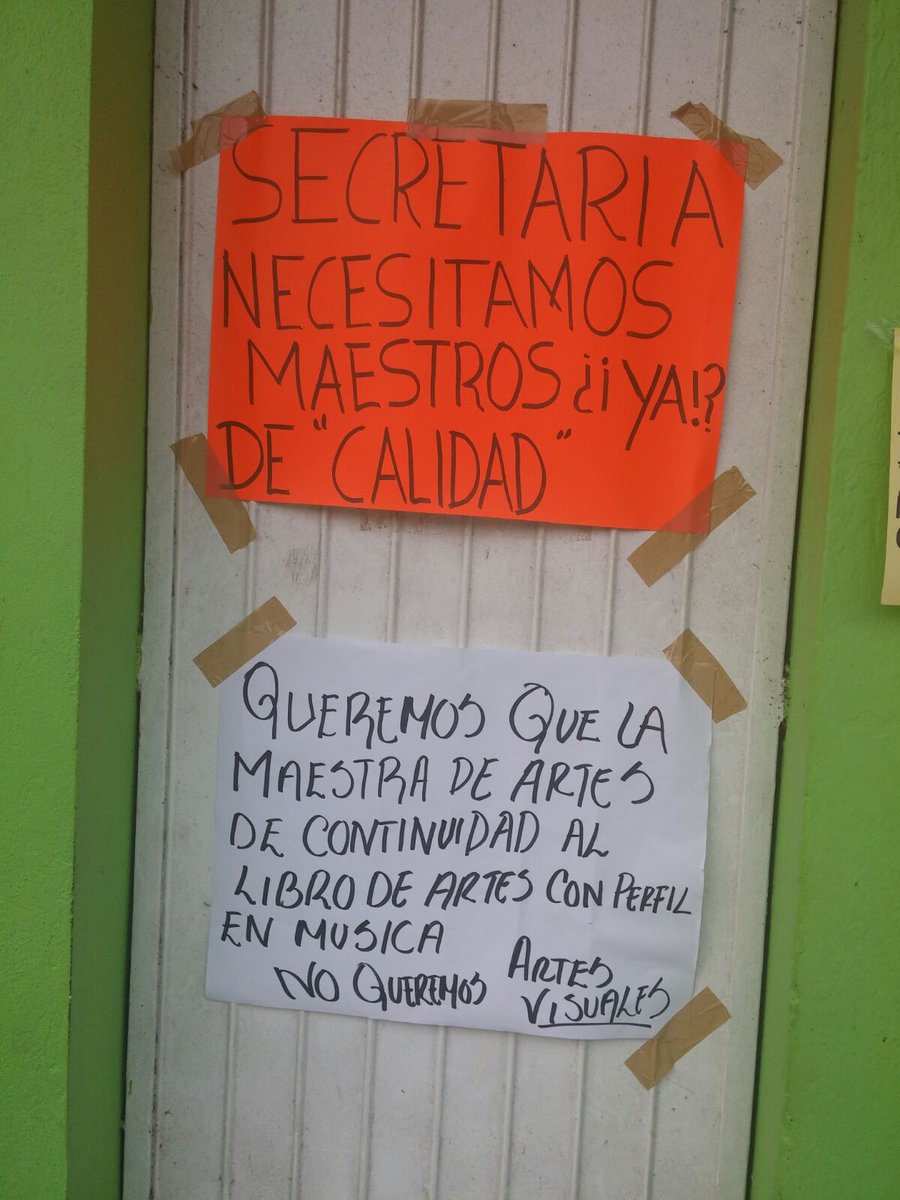 SECRETARIA
NECESITAMOS
MAESTROS ¿¡YA!?
DE "CALIDAD"
QUEREMOS QUE LA
MAESTRA DE ARTES
DE CONTINUIDAD AL
LIBRO DE ARTES CON PERFIL
EN MUSICA
NO QUEREMOS ARTES
VISUALES